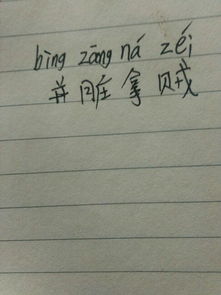 bìng zāng ná zéi
并脏拿贼